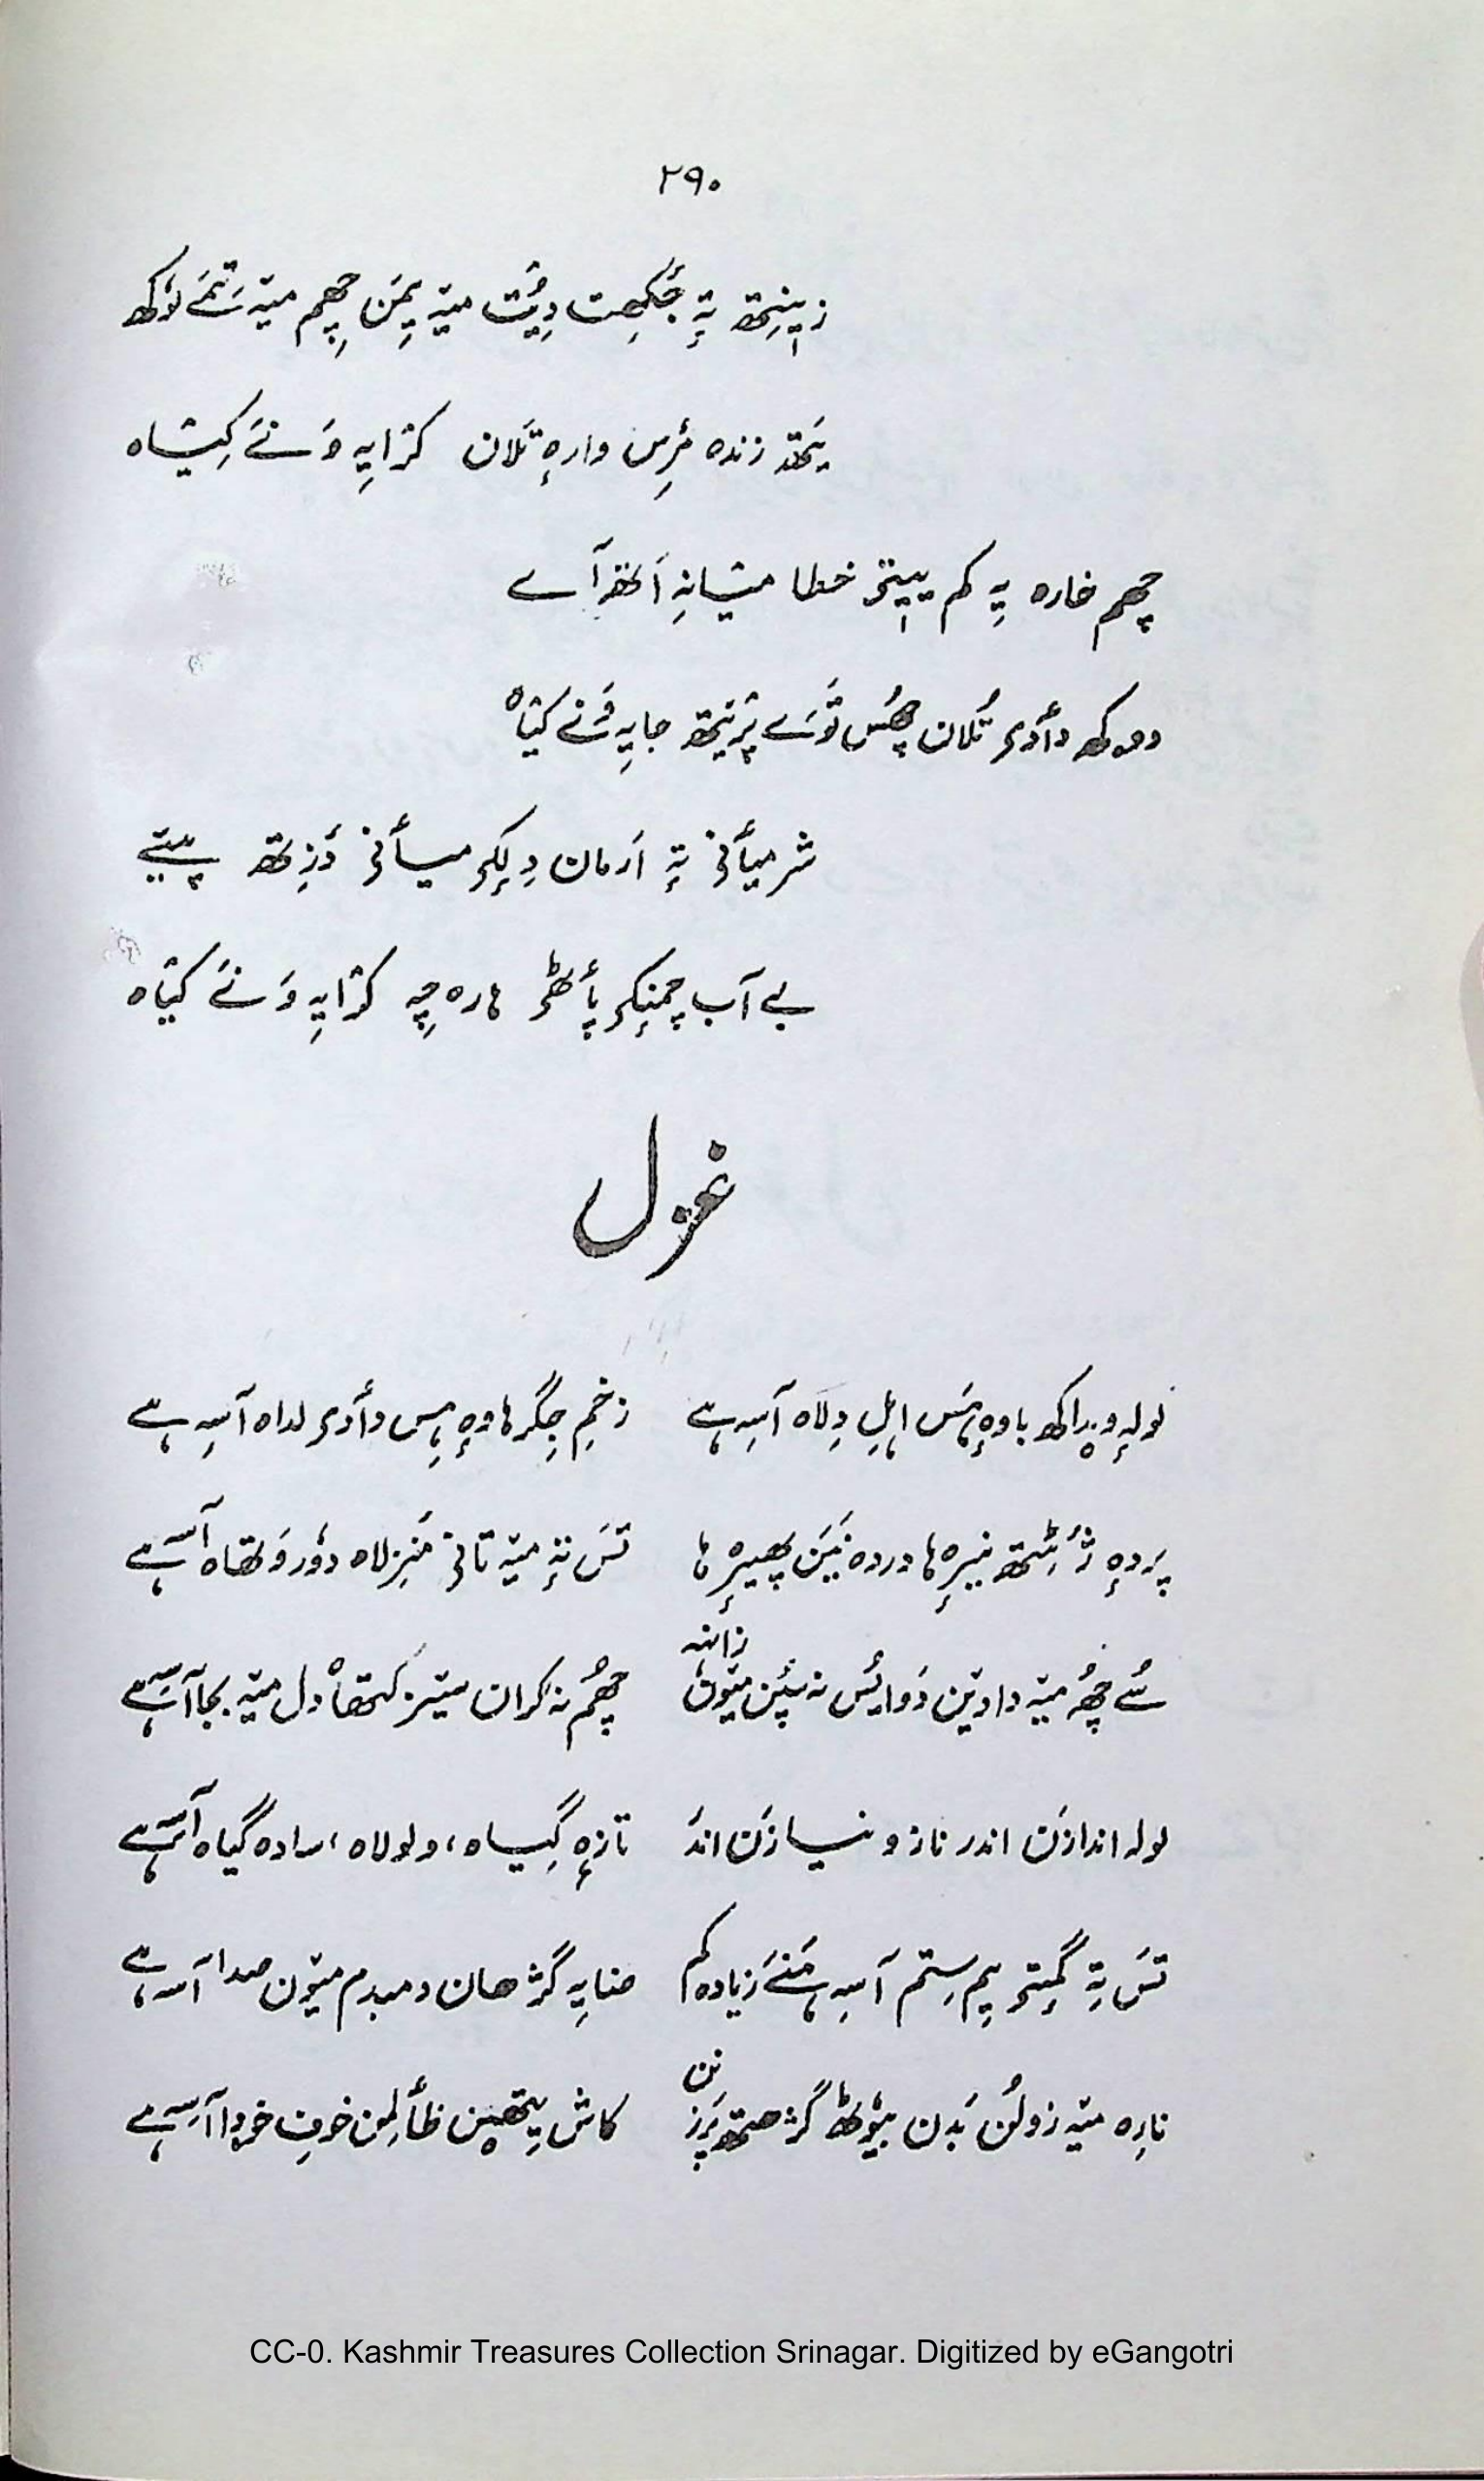 ۲۹۰
زٕینِتھ تہٕ جُکھِت دِیُت میٚہ یِمَن چِھم میٚہ سَتَمَے لۆکھ
یَتھ زندہ مٔرِس وارہٕ تَلان کژایہِ وَنے کِیٛتاہ
چھم خارہ یہِ کم خطا میٛانہِ اَتھٕ آے
دوکھ دٲدی تُلان چُھس تَوَے پٔرِتھ جایہِ وَنے کیٛتاہ
شر میٲنۍ تہٕ اَرمان دِلِکۍ میٲنۍ دٔزِتھ پیٚیے
بے آب چَمنِکۍ پٲٹھۍ ہارہ چہِ کژایہِ وَنے کیٛتاہ
غزل
لولہٕ ویداکھ باوہٕ ہَس اہلِ دِلاہ آسہِ ہے زخمِ جِگر ہاوہٕ ہس دٲدۍ لداہ آسہِ ہے
پَردہٕ ژٔٹِتھ نیرِہا دردہ نَیَن پھیرِہا تَس تہٕ میٚہ تانۍ مَنزِلاہ دوٗر وَتھاہ آسہِ ہے
سُے چُھ میٚہ دادیٚن دَوا یُس نہ بنیٚن میوٗن زانہہ چُھم نہ کران کتھاہ دل میٚہ بجا آسہِ ہے
لولہ اندازَن اندر ناز و نیازَن اندَر تازہٕ گیاہ، ولولاہ، سادہ گیاہ آسہِ ہے
تَس تہٕ گٔمتۍ یِم سِتم آسہِ ہَن زیادہ کم صنایہِ گژھان دمبدم میوٗن صدا آسہِ ہے
نارہ میٚہ زولُن بَدن بیوٗٹھ گژھتھ پَرزِنَن کاش یِتھیٚن ظٲلِمن خوفِ خدا آسہِ ہے
CC-0. Kashmir Treasures Collection Srinagar. Digitized by eGangotri